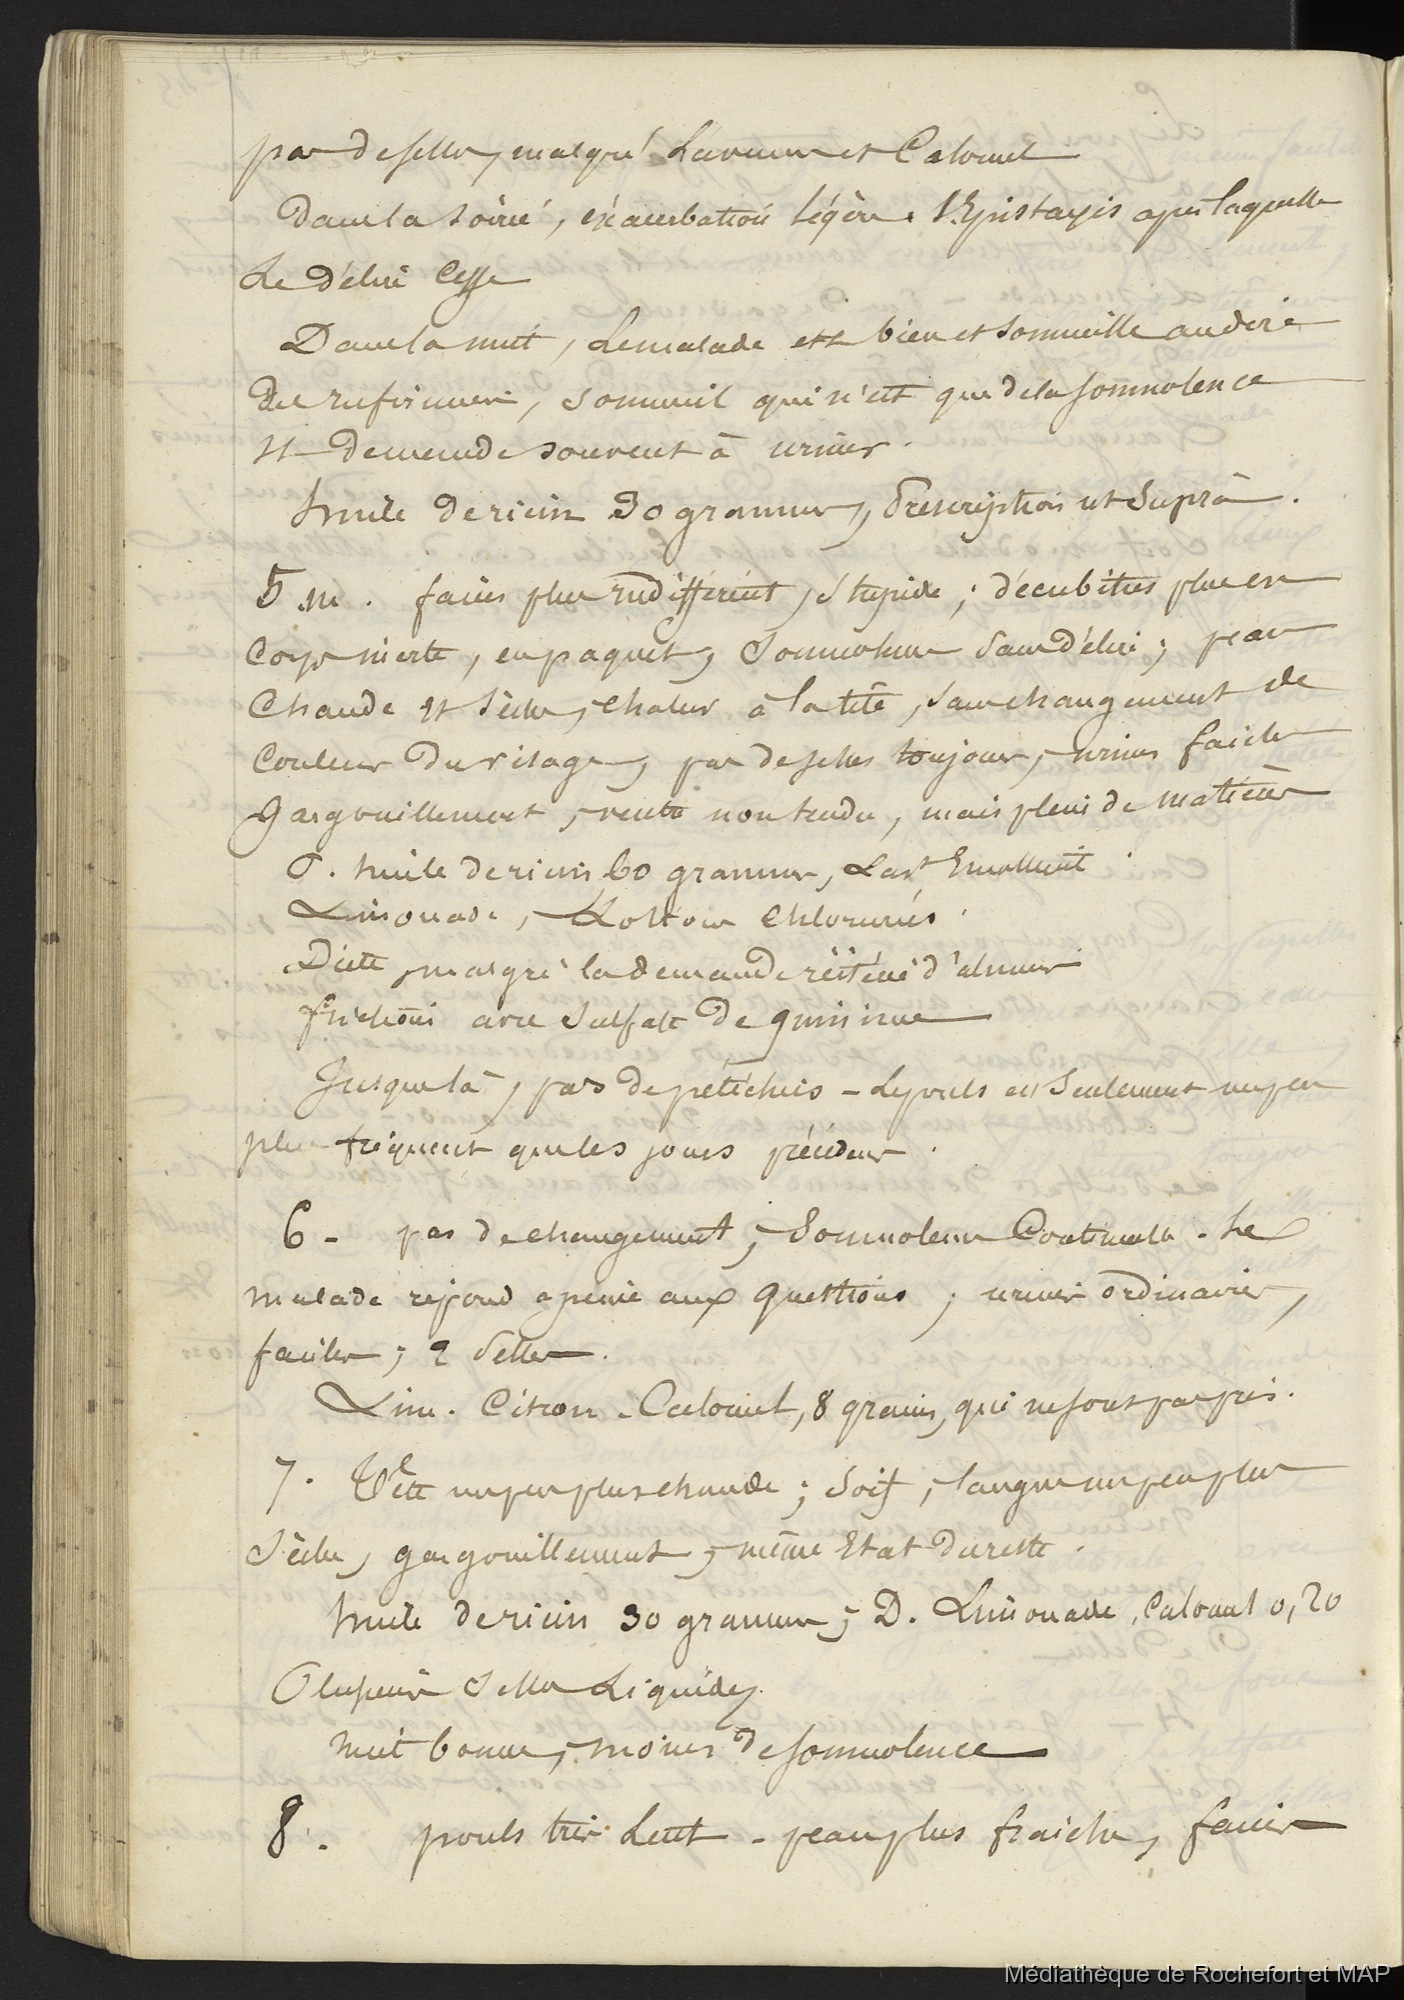 pas de selles, malgré Lavement et Calomel
Dans la soirée, éxacerbation légère. 1. Epistaxis après laquelle
Le délire Cesse
Dans la nuit, Le malade est bien et sommeille au dire
de infirmier, sommeil qui n'est que de la somnolence
Il demande souvent à uriner.
huile de ricin 30 grammes, Prescription ut Suprà.
5 m. faciès plus indifférent, stupide; décubitus plus en
Corps inerte, en paquet, Somnolence sans délire; peau
Chaude et sèche, chaleur à la tête, sans changement de
Couleur du visage, pas de selles toujours, urines faciles
Gargouillement, ventre non tendu, mais plein de matières
P. huile de ricin 60 grammes, Lavt Emollient
Limonade, Lotions Chlorurées.
Diète, malgré la demande réïtérée d'alimens
frictions avec Sulfate de quinine
Jusque là, pas de pétéchies - Le pouls est seulement un peu
plus fréquent que les jours précédens.
6 - pas de changement, Somnolence Continuelle. Le
malade répond à peine aux questions, urines ordinaires,
faciles; 2 selles.
Lim. Citron - Calomel, 8 grains, qui ne sont pas pris.
7. Tête un peu plus chaude; Soif, langue un peu plus
Sèche, gargouillement, même Etat du reste.
huile de ricin 30 grammes; D. Limonade, Calomel 0,20
Plusieurs selles Liquides.
nuit bonne, moins de somnolence
8. pouls très Lent - peau plus fraîche, faciès
Médiathèque de Rochefort et MAP